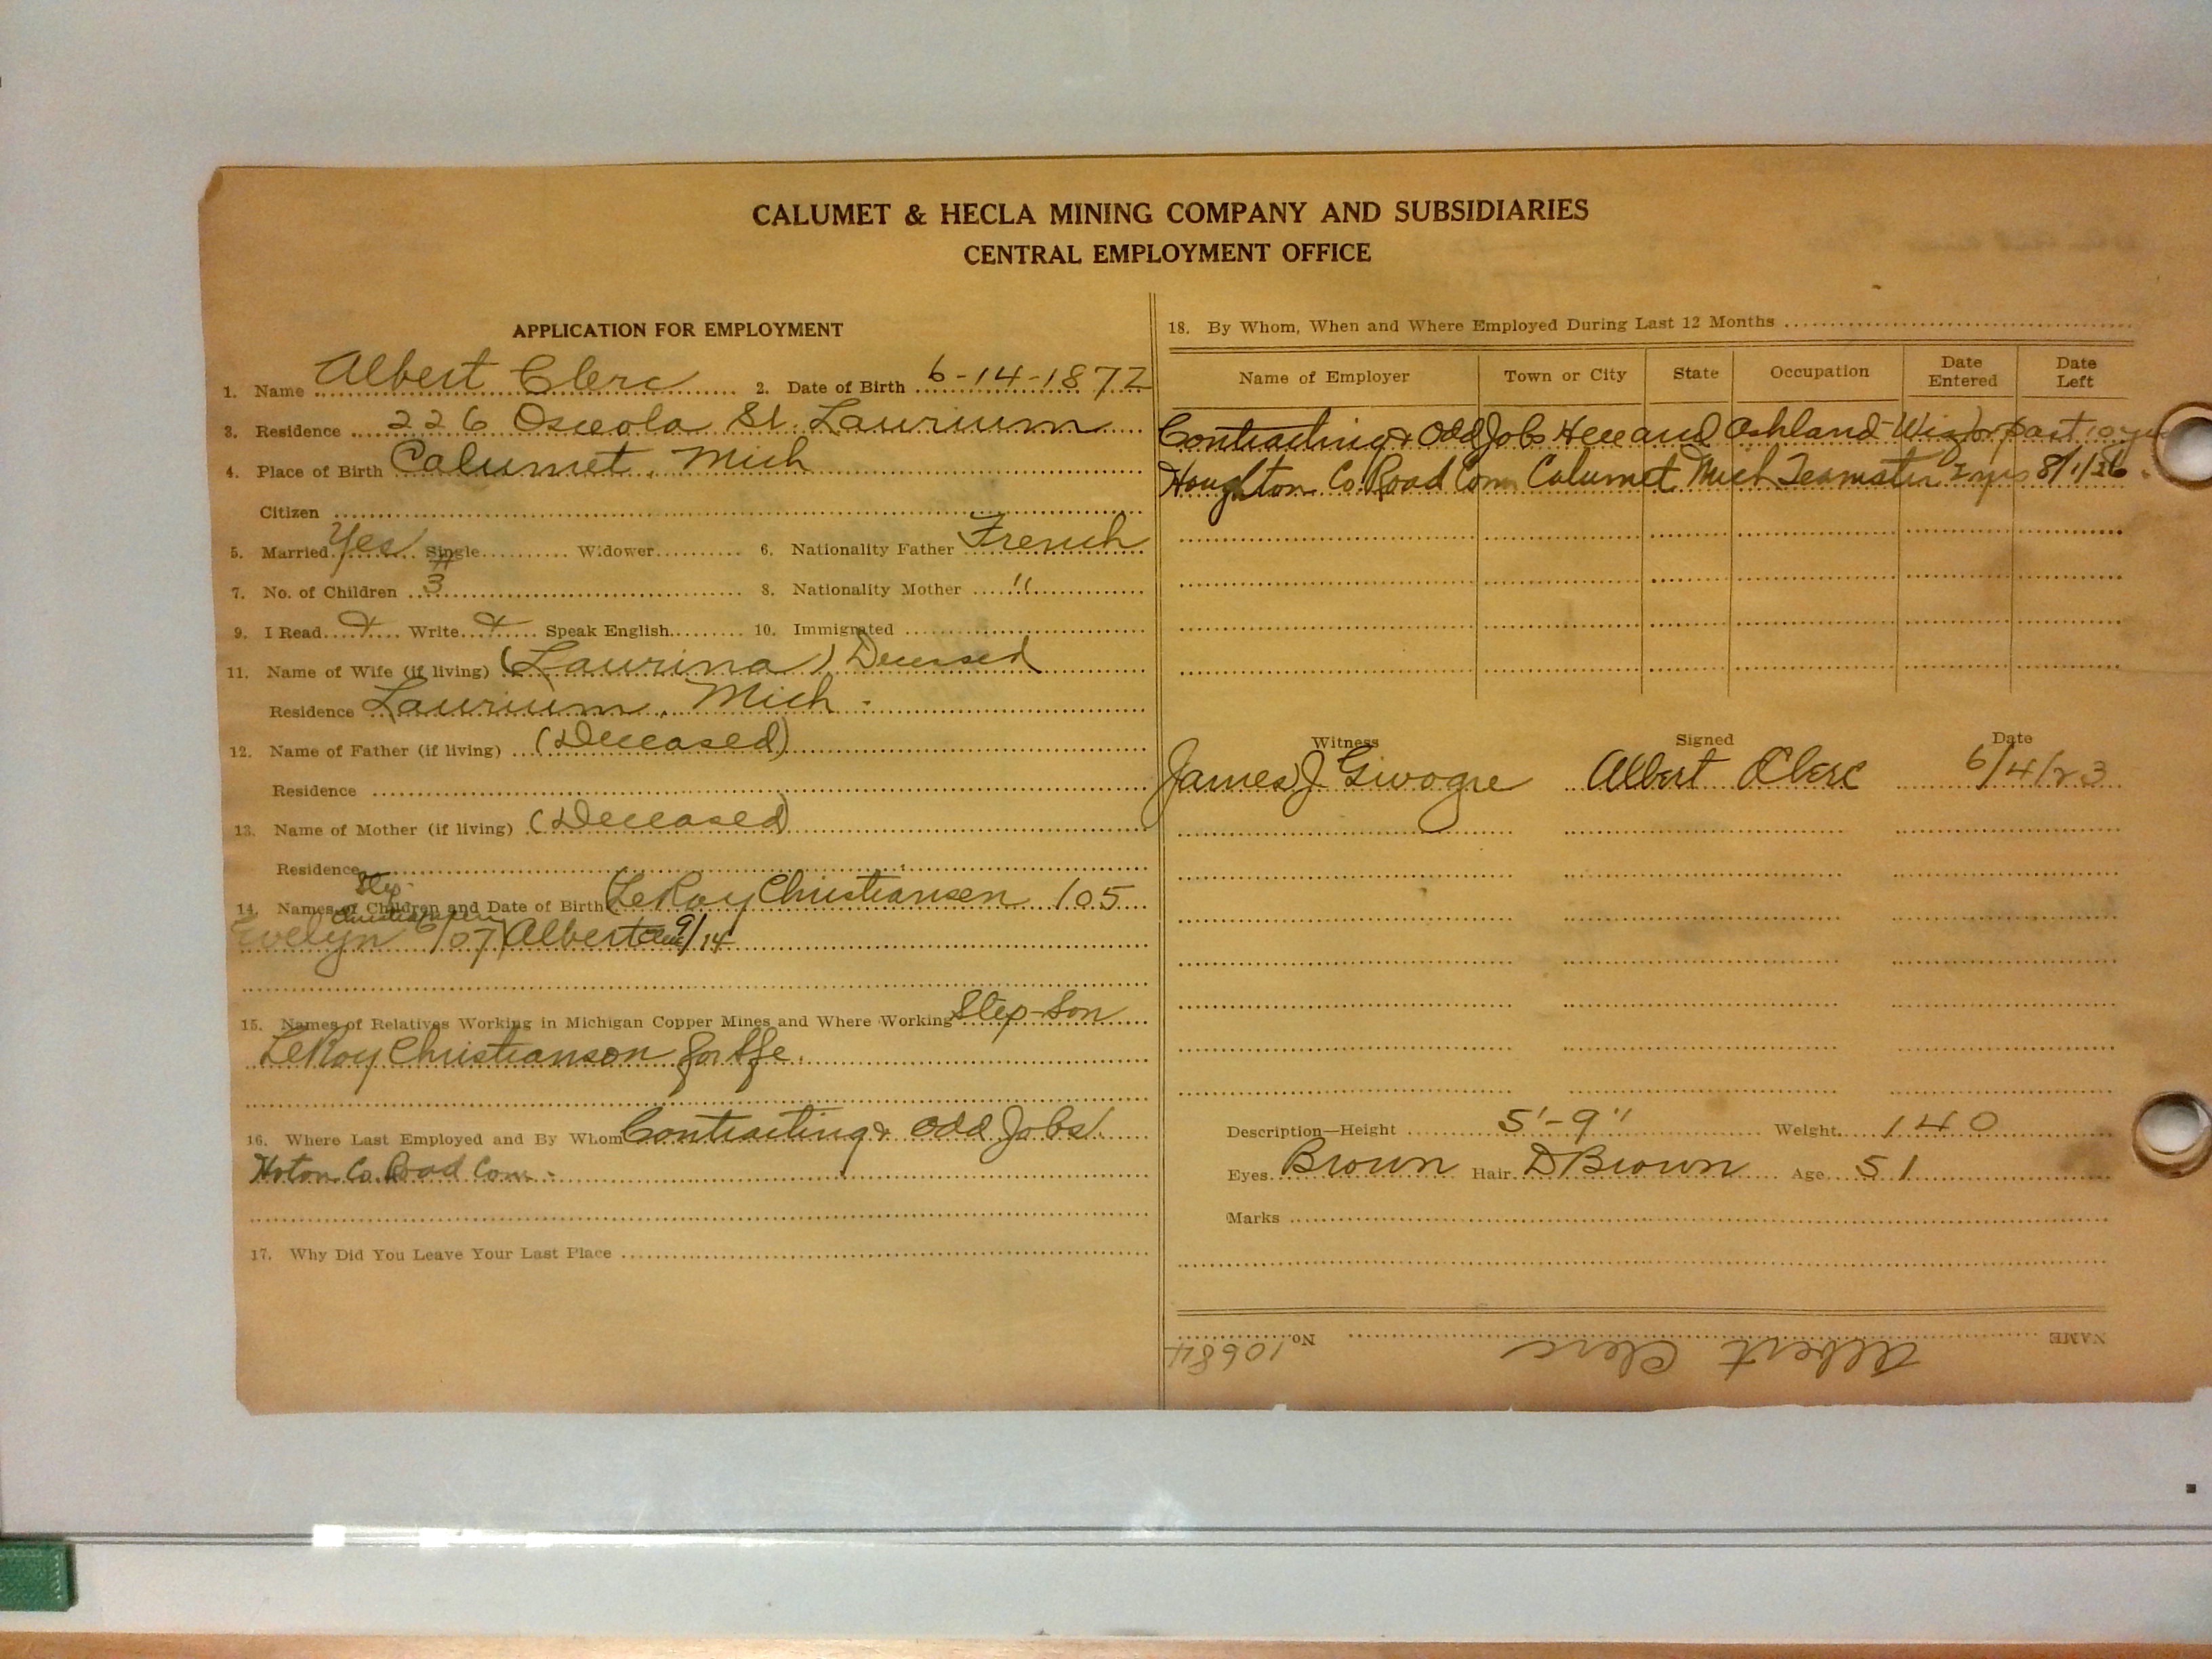 CALUMET & HECLA MINING COMPANY AND SUBSIDIARIES
CENTRAL EMPLOYMENT OFFICE
APPLICATION FOR EMPLOYMENT
1. Name Albert Clerc 2. Date of Birth 6-14-1872
3. Residence 226 Osceola St. Laurium
4. Place of Birth Calumet, Mich
Citizen
5. Married Yes Single Widower 6. Nationality Father French
7. No. of Children 3 8. Nationality Mother "
9. I Read + Write + Speak English 10. Immigrated
11. Name of Wife (if living) (Laurina) Deceased
Residence Laurium, Mich.
12. Name of Father (if living) (Deceased)
Residence
13. Name of Mother (if living) (Deceased)
Residence
Step-
14. Names of Children and Date of Birth (LeRoy Christiansen 105
Evelyn 6/07) Albert Clerc 9/14
15. Names of Relatives Working in Michigan Copper Mines and Where Working Step-Son
LeRoy Christianson for
16. Where Last Employed and By Whom Contracting & Odd Jobs
Hoton Co. Road Com.
17. Why Did You Leave Your Last Place
18. By Whom, When and Where Employed During Last 12 Months
Name of Employer Town or City State Occupation Date Entered Date Left
Contracting & Odd Jobs Here and Ashland Wis for past 10 yrs
Houghton Co. Road Com Calumet Mich Teamster 2 yrs 8/1/26
Witness Signed Date
James J. Albert Clerc 6/4/23
Description—Height 5'-9" Weight 140
Eyes Brown Hair D Brown Age 51
Marks
NAME Albert Clerc No. 10684